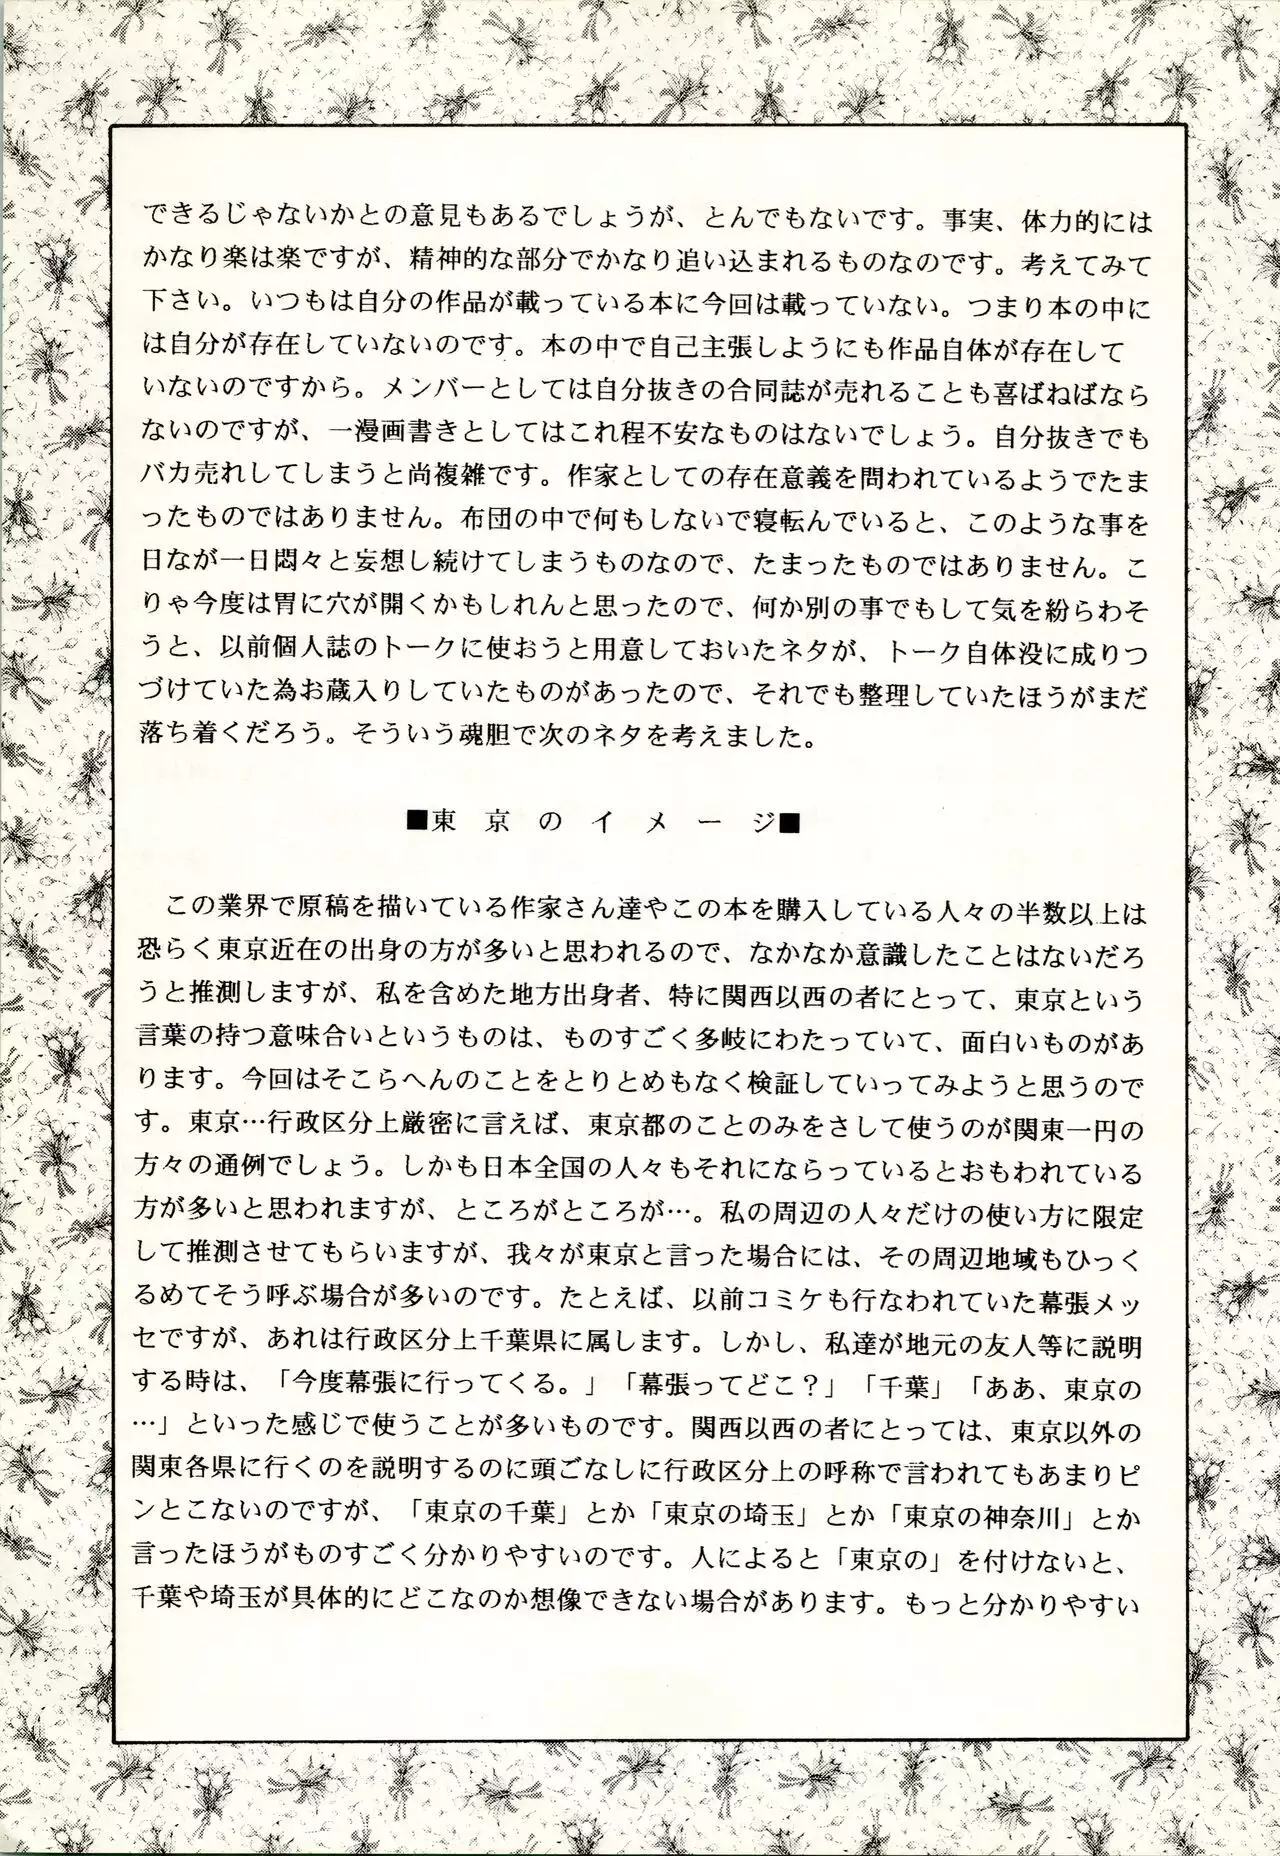 できるじゃないかとの意見もあるでしょうが、とんでもないです。事実、体力的には
かなり楽は楽ですが、精神的な部分でかなり追い込まれるものなのです。考えてみて
下さい。いつもは自分の作品が載っている本に今回は載っていない。つまり本の中に
は自分が存在していないのです。本の中で自己主張しようにも作品自体が存在して
いないのですから。メンバーとしては自分抜きの合同誌が売れることも喜ばねばなら
ないのですが、一漫画書きとしてはこれ程不安なものはないでしょう。自分抜きでも
バカ売れしてしまうと尚複雑です。作家としての存在意義を問われているようでたま
ったものではありません。布団の中で何もしないで寝転んでいると、このような事を
日なが一日悶々と妄想し続けてしまうものなので、たまったものではありません。こ
りゃ今度は胃に穴が開くかもしれんと思ったので、何か別の事でもして気を紛らわそ
うと、以前個人誌のトークに使おうと用意しておいたネタが、トーク自体没に成りつ
づけていた為お蔵入りしていたものがあったので、それでも整理していたほうがまだ
落ち着くだろう。そういう魂胆で次のネタを考えました。
■東京のイメージ■
この業界で原稿を描いている作家さん達やこの本を購入している人々の半数以上は
恐らく東京近在の出身の方が多いと思われるので、なかなか意識したことはないだろ
うと推測しますが、私を含めた地方出身者、特に関西以西の者にとって、東京という
言葉の持つ意味合いというものは、ものすごく多岐にわたっていて、面白いものがあ
ります。今回はそこらへんのことをとりとめもなく検証していってみようと思うので
す。東京…行政区分上厳密に言えば、東京都のことのみをさして使うのが関東一円の
方々の通例でしょう。しかも日本全国の人々もそれにならっているとおもわれている
方が多いと思われますが、ところがところが…。私の周辺の人々だけの使い方に限定
して推測させてもらいますが、我々が東京と言った場合には、その周辺地域もひっく
るめてそう呼ぶ場合が多いのです。たとえば、以前コミケも行なわれていた幕張メッ
セですが、あれは行政区分上千葉県に属します。しかし、私達が地元の友人等に説明
する時は、「今度幕張に行ってくる。」「幕張ってどこ？」「千葉」「ああ、東京の
…」といった感じで使うことが多いものです。関西以西の者にとっては、東京以外の
関東各県に行くのを説明するのに頭ごなしに行政区分上の呼称で言われてもあまりピ
ンとこないのですが、「東京の千葉」とか「東京の埼玉」とか「東京の神奈川」とか
言ったほうがものすごく分かりやすいのです。人によると「東京の」を付けないと、
千葉や埼玉が具体的にどこなのか想像できない場合があります。もっと分かりやすい